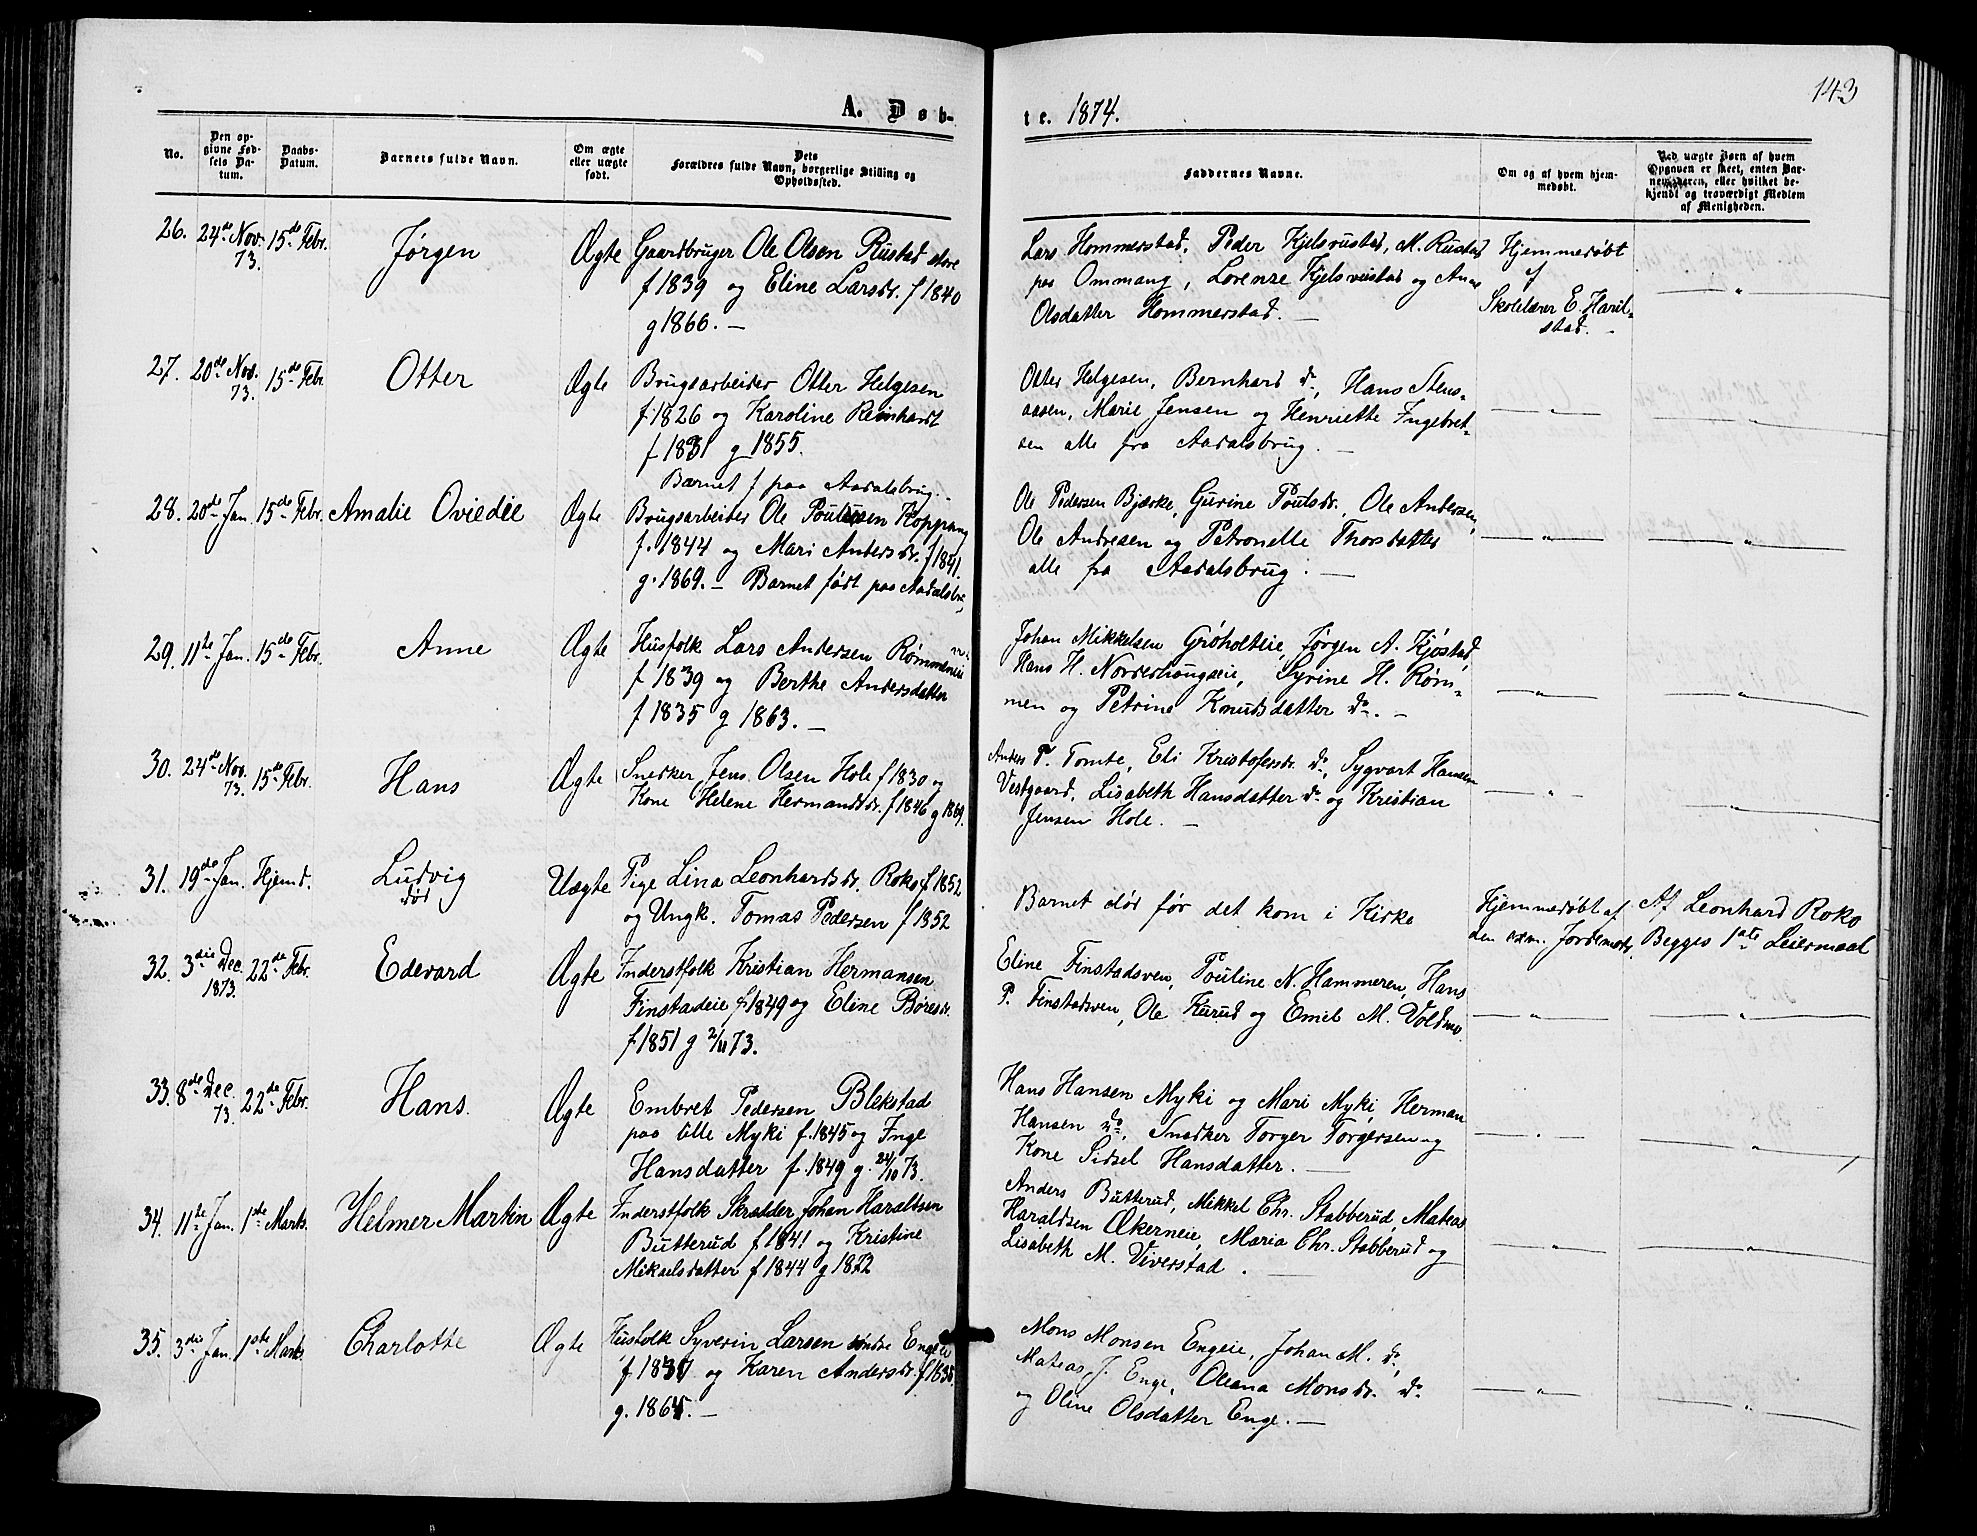 143
A. Døb-
te. 1874.
No.
Den op-
givne Fød-
sels Da-
tum.
Daabs-
Datum.
Barnets fulde Navn.
Om ægte
eller uægte
født.
Dets
Forældres fulde Navn, borgerlige Stilling og
Opholdssted.
Faddernes Navne.
Om og af hvem hjem-
medøbt.
Ved uægte Børn af hvem
Opgaven er skeet, enten Bar-
nemoderen, eller hvilket be-
kjendt og troværdigt Medlem
af Menigheden.
26. 24de Nov. 73. 15de Febr. Jørgen Ægte
Gaardbruger Ole Olsen Rustad store
f 1839 og Eline Larsdr. f 1840
g 1866. —
Lars Hommerstad, Peder Kjelsrustad, M. Rustad
paa Ommang, Lorense Kjelsrustad og Anne
Olsdatter Hommerstad. —
Hjemmedøbt
af
Skolelærer E. Haril-
stad. —
— " —
27. 20de Nov. 73. 15de Febr. Otter Ægte
Brugsarbeider Otter Helgesen
f. 1826 og Karoline Reinhardt
f 1831 g 1855.
Barnet f paa Aadalsbrug. -
Otter Helgesen, Bernhard do, Hans Stens-
aasen, Marie Jensen og Henriette Ingebret-
sen alle fra Aadalsbrug. —
— " —
— " —
28. 20de Jan. 15de Febr. Amalie Oviedie Ægte
Brugsarbeider Ole Poulsen Koppang
f. 1844 og Mari Andersdr. f 1841.
g. 1869. — Barnet født paa Aadalsbr.
Ole Pedersen Bjerke, Gurine Poulsdr., Ole Andersen,
Ole Andresen og Petronelle Thorsdatter
alle fra Aadalsbrug. —
— " —
— " —
29. 11te Jan. 15de Febr. Anne Ægte
Husfolk Lars Andersen Rømmeneie
f 1839 og Berthe Andersdatter
f 1835 g 1863. —
Johan Mikkelsen Grøholteie, Jørgen A. Kjøstad,
Hans H. Norderhougseie, Syrine H. Røm-
men og Petrine Knudsdatter do. —
— " —
— " —
30. 24de Nov. 73. 15de Febr. Hans Ægte
Snedker Jens Olsen Hole f 1830 og
Kone Helene Hermandsdr. f 1846 g 1869.
Anders P. Tomte, Eli Kristofersdr. do, Sygvart Hansen
Vestgaard, Lisabeth Hansdatter do og Kristian
Jensen Hole. —
— " —
— " —
31. 19de Jan. Hjemd. Ludvig Uægte
død
Pige Lina Leonhardsdr. Roko f 1852
og Ungk. Tomas Pedersen f 1852
Barnet død før det kom i Kirke
Hjemmedøbt af
den exm. Jordemoder
Af Leonhard Roko
Begges 1ste Leiermaal
32. 3die Dec. 1873. 22de Febr. Edevard Ægte
Inderstfolk Kristian Hermansen
Finstadeie f 1849 og Eline Børesdr.
f 1851 g 2/11 73.
Eline Finstadsven, Pouline N. Hammeren, Hans
P. Finstadsven, Ole Kurud og Emil M. Voldmo
— " —
— " —
33. 8de Dec. 73. 22de Febr. Hans. Ægte
Embret Pedersen Blekstad
paa lille Myki f. 1845 og Inge
Hansdatter f. 1849 g. 24/10 73.
Hans Hansen Myki og Mari Myki, Herman
Hansen do, Snedker Torger Torgersen og
Kone Sidsel Hansdatter. —
— " —
— " —
34. 11te Jan. 1ste Marts. Helmer Martin Ægte
Inderstfolk Skrædder Johan Haraldsen
Butterud f 1841 og Kristine
Mikaelsdatter f 1844 g 1872
Anders Butterud, Mikkel Chr. Stabberud, Mateas
Haraldsen Økerneie, Maria Chr. Stabberud og
Lisabeth M. Viverstad. —
— " —
— " —
35. 3die Jan. 1ste Marts. Charlotte Ægte
Husfolk Syverin Larsen søndre Engeie
f 1837 og Karen Andersdr. f 1835
g. 1865. —
Mons Monsen Engeie, Johan M. do,
Mateas J. Enge, Oleana Monsdr. do
og Oline Olsdatter Enge. —
— " —
— " —